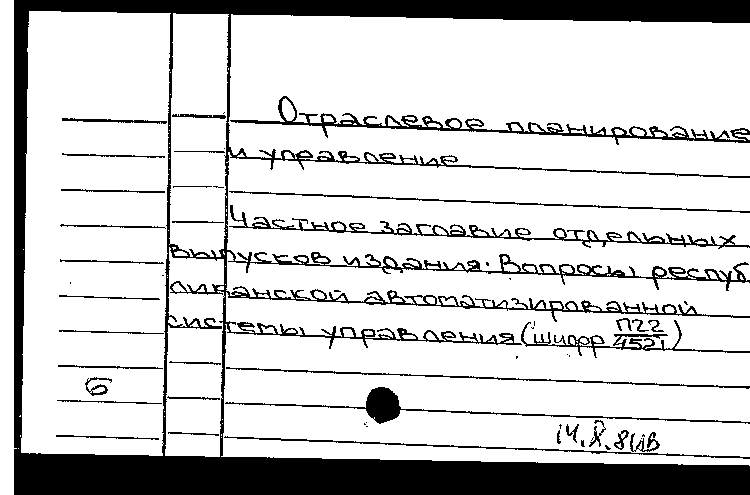 Отраслевое планирование
и управление
Частное заглавие отдельных
выпусков издания: Вопросы респуб
ликанской автоматизированной
системы управления (шифр П22/4521)
6
14.X.81